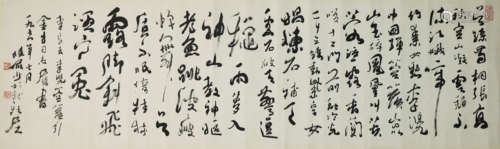 吴丝蜀桐张高
秋空山凝云颓不
流江娥啼竹
素女愁李凭
中国弹箜篌崑山
玉碎凤凰叫芙
蓉泣露香兰
笑十二门前融冷
光二十三丝动紫皇女
娲炼石补天
处石破天惊逗
秋雨梦入
神山教神妪
老鱼跳波瘦
蛟舞吴
质不眠倚桂树
露脚斜飞
湿寒兔
李长吉李凭箜篌引